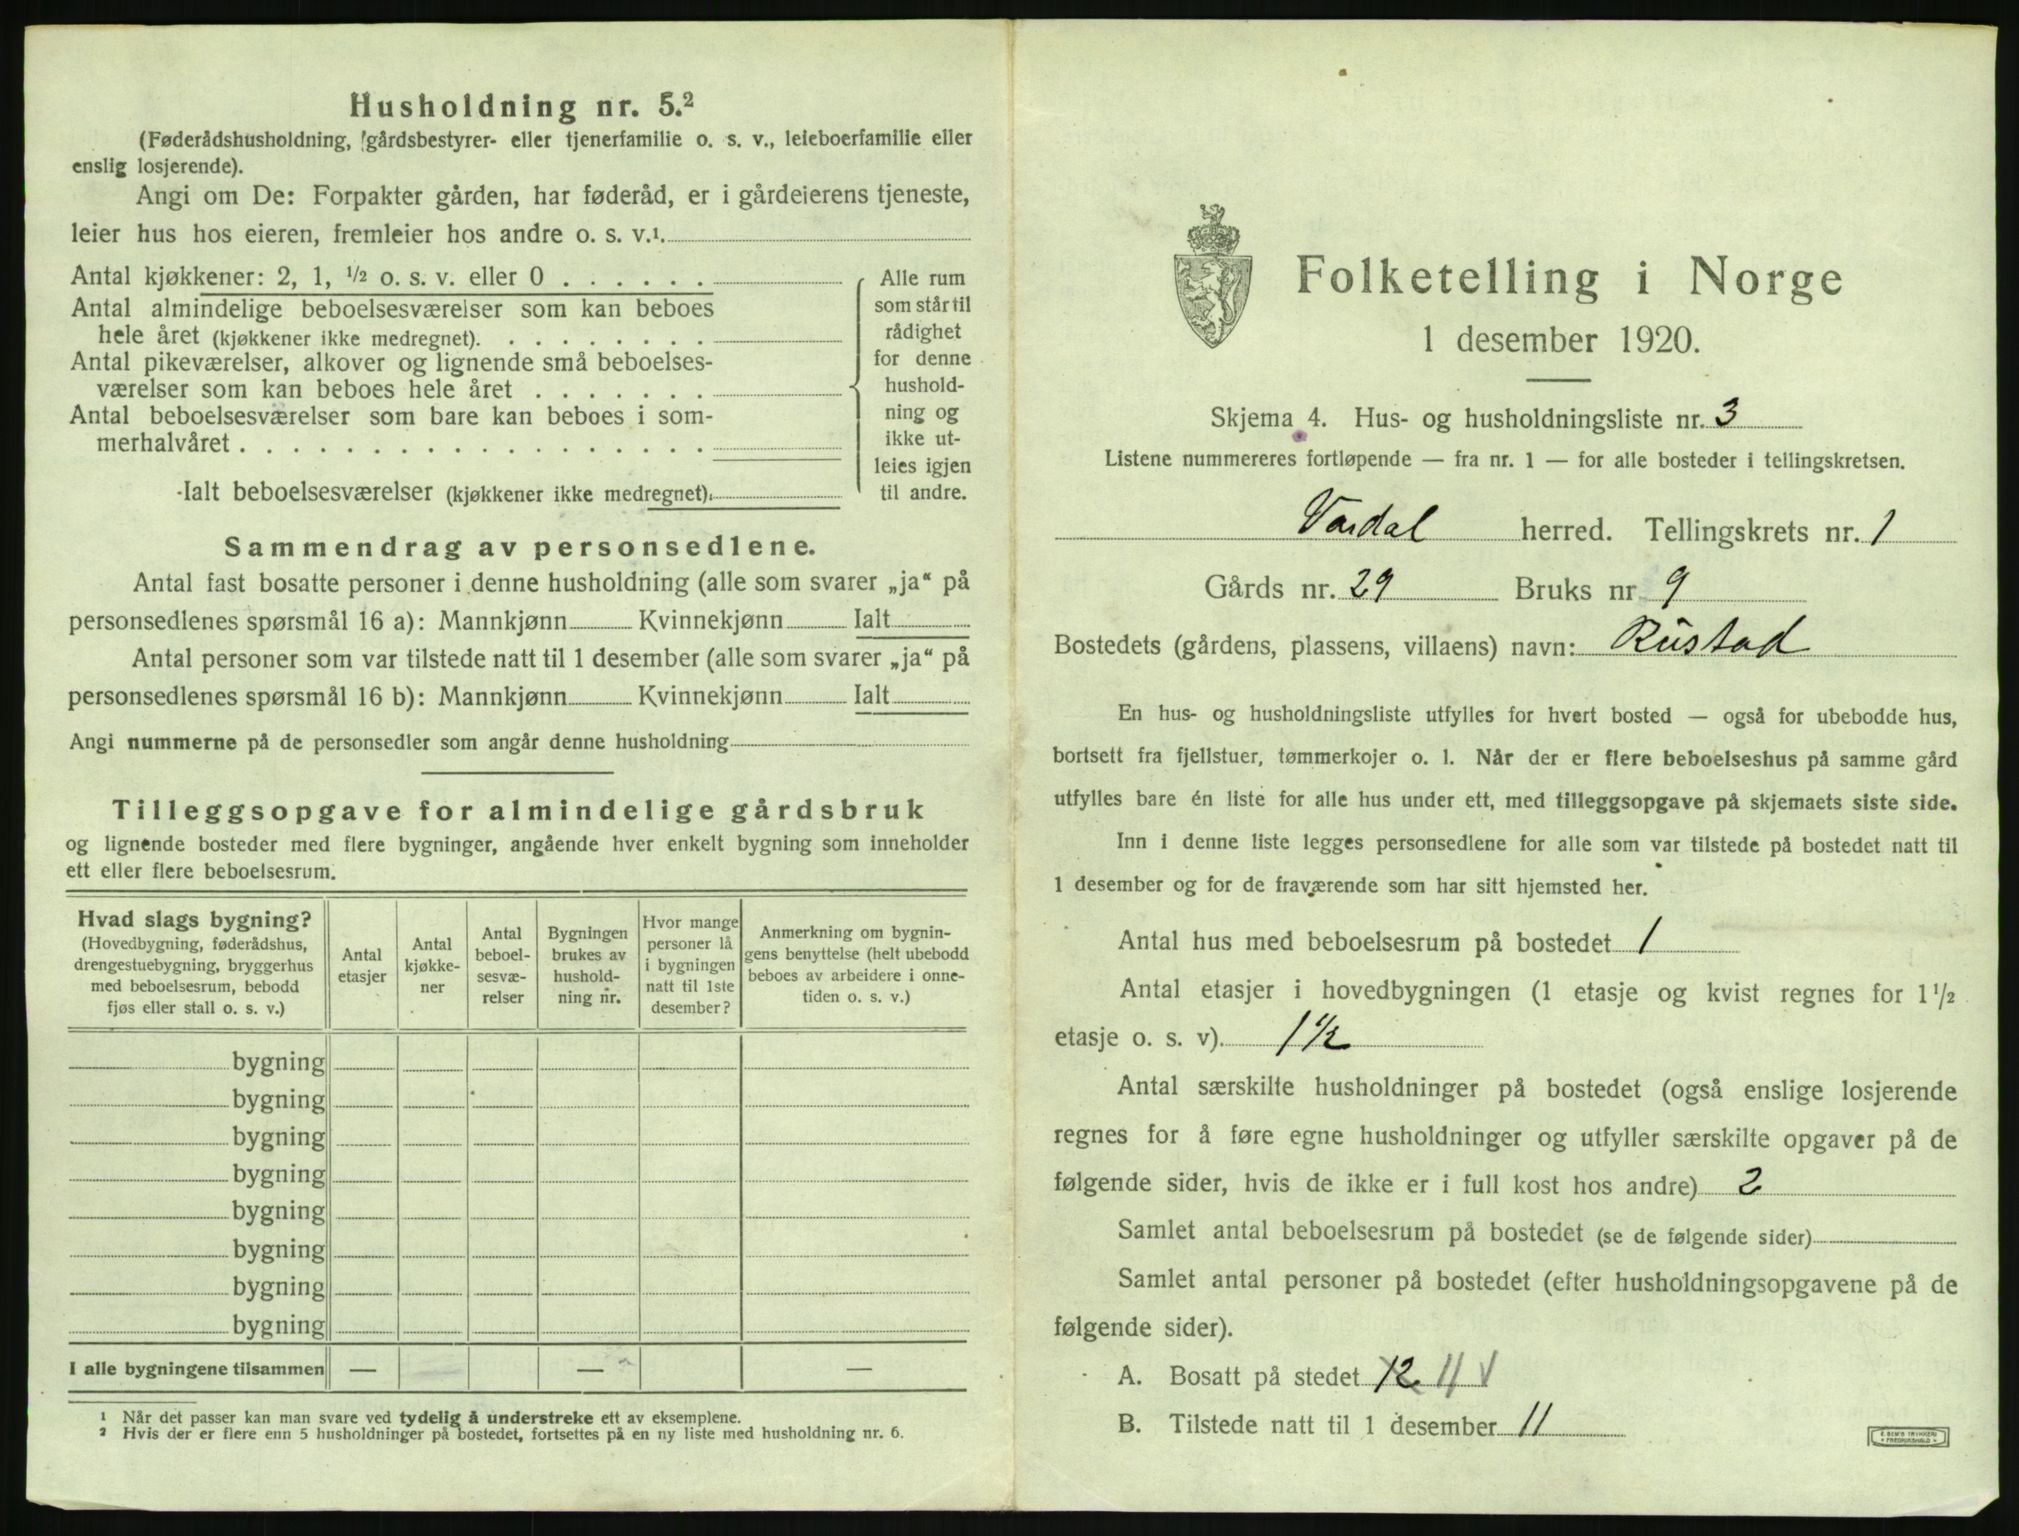 Husholdning nr. 5.²
(Føderådshusholdning, gårdsbestyrer- eller tjenerfamilie o. s. v., leieboerfamilie eller
enslig losjerende).
Angi om De: Forpakter gården, har føderåd, er i gårdeierens tjeneste,
leier hus hos eieren, fremleier hos andre o. s. v.¹
Antal kjøkkener: 2, 1, ½ o. s. v. eller 0 . . . . . .
Antal almindelige beboelsesværelser som kan beboes
hele året (kjøkkener ikke medregnet). . . . . . . . .
Antal pikeværelser, alkover og lignende små beboelses-
værelser som kan beboes hele året . . . . . . .
Antal beboelsesværelser som bare kan beboes i som-
merhalvåret . . . . . . . . . . . . . . . . . .
Ialt beboelsesværelser (kjøkkener ikke medregnet).
Alle rum
som står til
rådighet
for denne
hushold-
ning og
ikke ut-
leies igjen
til andre.
Sammendrag av personsedlene.
Antal fast bosatte personer i denne husholdning (alle som svarer „ja“ på
personsedlenes spørsmål 16 a): Mannkjønn Kvinnekjønn Ialt
Antal personer som var tilstede natt til 1 desember (alle som svarer „ja“ på
personsedlenes spørsmål 16 b): Mannkjønn Kvinnekjønn Ialt
Angi nummerne på de personsedler som angår denne husholdning
Tilleggsopgave for almindelige gårdsbruk
og lignende bosteder med flere bygninger, angående hver enkelt bygning som inneholder
ett eller flere beboelsesrum.
Hvad slags bygning?
(Hovedbygning, føderådshus,
drengestuebygning, bryggerhus
med beboelsesrum, bebodd
fjøs eller stall o. s. v.)
Antal
etasjer
Antal
kjøkke-
ner
Antal
beboel-
sesvæ-
relser
Bygningen
brukes av
hushold-
ning nr.
Hvor mange
personer lå
i bygningen
natt til 1ste
desember?
Anmerkning om bygnin-
gens benyttelse (helt ubebodd
beboes av arbeidere i onne-
tiden o. s. v.)
bygning
bygning
bygning
bygning
bygning
bygning
bygning
bygning
I alle bygningene tilsammen — — —
¹ Når det passer kan man svare ved tydelig å understreke ett av eksemplene.
² Hvis der er flere enn 5 husholdninger på bostedet, fortsettes på en ny liste med husholdning nr. 6.
Folketelling i Norge
1 desember 1920.
Skjema 4. Hus- og husholdningsliste nr. 3
Listene nummereres fortløpende — fra nr. 1 — for alle bosteder i tellingskretsen.
Vardal herred. Tellingskrets nr. 1
Gårds nr. 29 Bruks nr 9
Bostedets (gårdens, plassens, villaens) navn: Rustad
En hus- og husholdningsliste utfylles for hvert bosted — også for ubebodde hus,
bortsett fra fjellstuer, tømmerkojer o. l. Når der er flere beboelseshus på samme gård
utfylles bare én liste for alle hus under ett, med tilleggsopgave på skjemaets siste side.
Inn i denne liste legges personsedlene for alle som var tilstede på bostedet natt til
1 desember og for de fraværende som har sitt hjemsted her.
Antal hus med beboelsesrum på bostedet 1
Antal etasjer i hovedbygningen (1 etasje og kvist regnes for 1½
etasje o. s. v). 1½
Antal særskilte husholdninger på bostedet (også enslige losjerende
regnes for å føre egne husholdninger og utfyller særskilte opgaver på de
følgende sider, hvis de ikke er i full kost hos andre) 2
Samlet antal beboelsesrum på bostedet (se de følgende sider)
Samlet antal personer på bostedet (efter husholdningsopgavene på de
følgende sider).
A. Bosatt på stedet 12 11 V
B. Tilstede natt til 1 desember 11
E. SEM'S TRYKKERI
FREDRIKSHALD